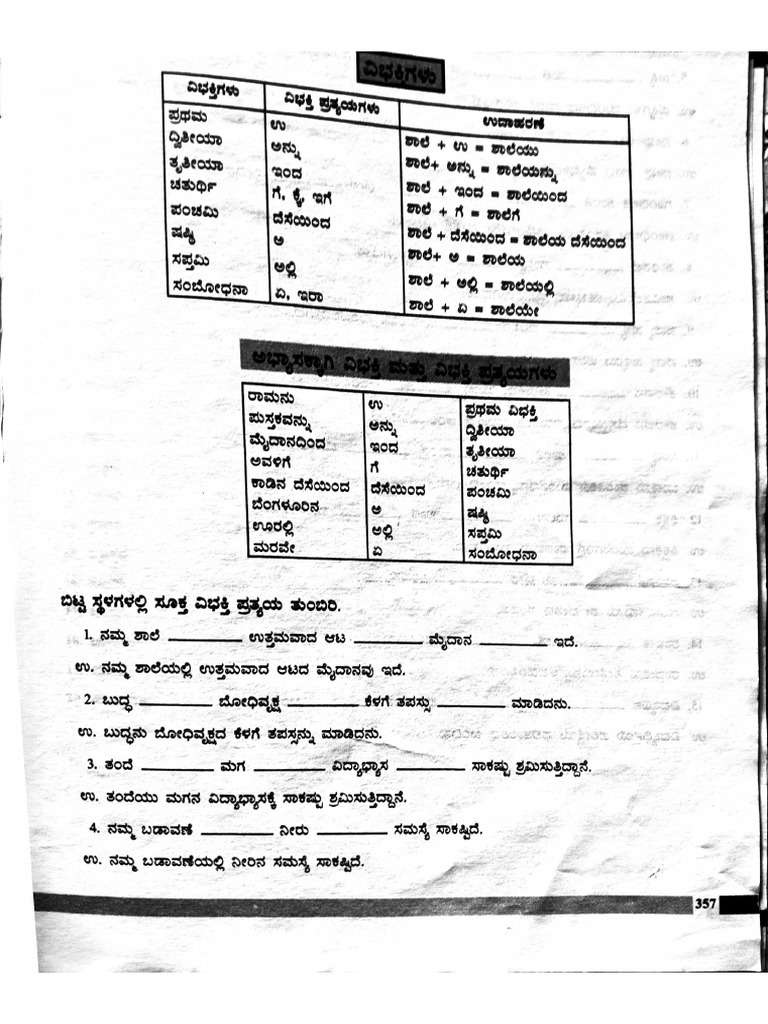 ವಿಭಕ್ತಿಗಳು
ವಿಭಕ್ತಿಗಳು ವಿಭಕ್ತಿ ಪ್ರತ್ಯಯಗಳು ಉದಾಹರಣೆ
ಪ್ರಥಮ ಉ ಶಾಲೆ + ಉ = ಶಾಲೆಯು
ದ್ವಿತೀಯಾ ಅನ್ನು ಶಾಲೆ+ ಅನ್ನು = ಶಾಲೆಯನ್ನು
ತೃತೀಯಾ ಇಂದ ಶಾಲೆ + ಇಂದ = ಶಾಲೆಯಿಂದ
ಚತುರ್ಥಿ ಗೆ, ಕ್ಕೆ, ಇಗೆ ಶಾಲೆ + ಗೆ = ಶಾಲೆಗೆ
ಪಂಚಮಿ ದೆಸೆಯಿಂದ ಶಾಲೆ + ದೆಸೆಯಿಂದ = ಶಾಲೆಯ ದೆಸೆಯಿಂದ
ಷಷ್ಠಿ ಅ ಶಾಲೆ+ ಅ = ಶಾಲೆಯ
ಸಪ್ತಮಿ ಅಲ್ಲಿ ಶಾಲೆ + ಅಲ್ಲಿ = ಶಾಲೆಯಲ್ಲಿ
ಸಂಬೋಧನಾ ಏ, ಇರಾ ಶಾಲೆ + ಏ = ಶಾಲೆಯೇ
ಅಭ್ಯಾಸಕ್ಕಾಗಿ ವಿಭಕ್ತಿ ಮತ್ತು ವಿಭಕ್ತಿ ಪ್ರತ್ಯಯಗಳು
ರಾಮನು ಉ ಪ್ರಥಮ ವಿಭಕ್ತಿ
ಪುಸ್ತಕವನ್ನು ಅನ್ನು ದ್ವಿತೀಯಾ
ಮೈದಾನದಿಂದ ಇಂದ ತೃತೀಯಾ
ಅವಳಿಗೆ ಗೆ ಚತುರ್ಥಿ
ಕಾಡಿನ ದೆಸೆಯಿಂದ ದೆಸೆಯಿಂದ ಪಂಚಮಿ
ಬೆಂಗಳೂರಿನ ಅ ಷಷ್ಠಿ
ಊರಲ್ಲಿ ಅಲ್ಲಿ ಸಪ್ತಮಿ
ಮರವೇ ಏ ಸಂಬೋಧನಾ
ಬಿಟ್ಟ ಸ್ಥಳಗಳಲ್ಲಿ ಸೂಕ್ತ ವಿಭಕ್ತಿ ಪ್ರತ್ಯಯ ತುಂಬಿರಿ.
1. ನಮ್ಮ ಶಾಲೆ ________ ಉತ್ತಮವಾದ ಆಟ ________ ಮೈದಾನ ________ ಇದೆ.
ಉ. ನಮ್ಮ ಶಾಲೆಯಲ್ಲಿ ಉತ್ತಮವಾದ ಆಟದ ಮೈದಾನವು ಇದೆ.
2. ಬುದ್ಧ ________ ಬೋಧಿವೃಕ್ಷ ________ ಕೆಳಗೆ ತಪಸ್ಸು ________ ಮಾಡಿದನು.
ಉ. ಬುದ್ಧನು ಬೋಧಿವೃಕ್ಷದ ಕೆಳಗೆ ತಪಸ್ಸನ್ನು ಮಾಡಿದ್ದನು.
3. ತಂದೆ ________ ಮಗ ________ ವಿದ್ಯಾಭ್ಯಾಸ ________ ಸಾಕಷ್ಟು ಶ್ರಮಿಸುತ್ತಿದ್ದಾನೆ.
ಉ. ತಂದೆಯು ಮಗನ ವಿದ್ಯಾಭ್ಯಾಸಕ್ಕೆ ಸಾಕಷ್ಟು ಶ್ರಮಿಸುತ್ತಿದ್ದಾನೆ.
4. ನಮ್ಮ ಬಡಾವಣೆ ________ ನೀರು ________ ಸಮಸ್ಯೆ ಸಾಕಷ್ಟಿದೆ.
ಉ. ನಮ್ಮ ಬಡಾವಣೆಯಲ್ಲಿ ನೀರಿನ ಸಮಸ್ಯೆ ಸಾಕಷ್ಟಿದೆ.
357